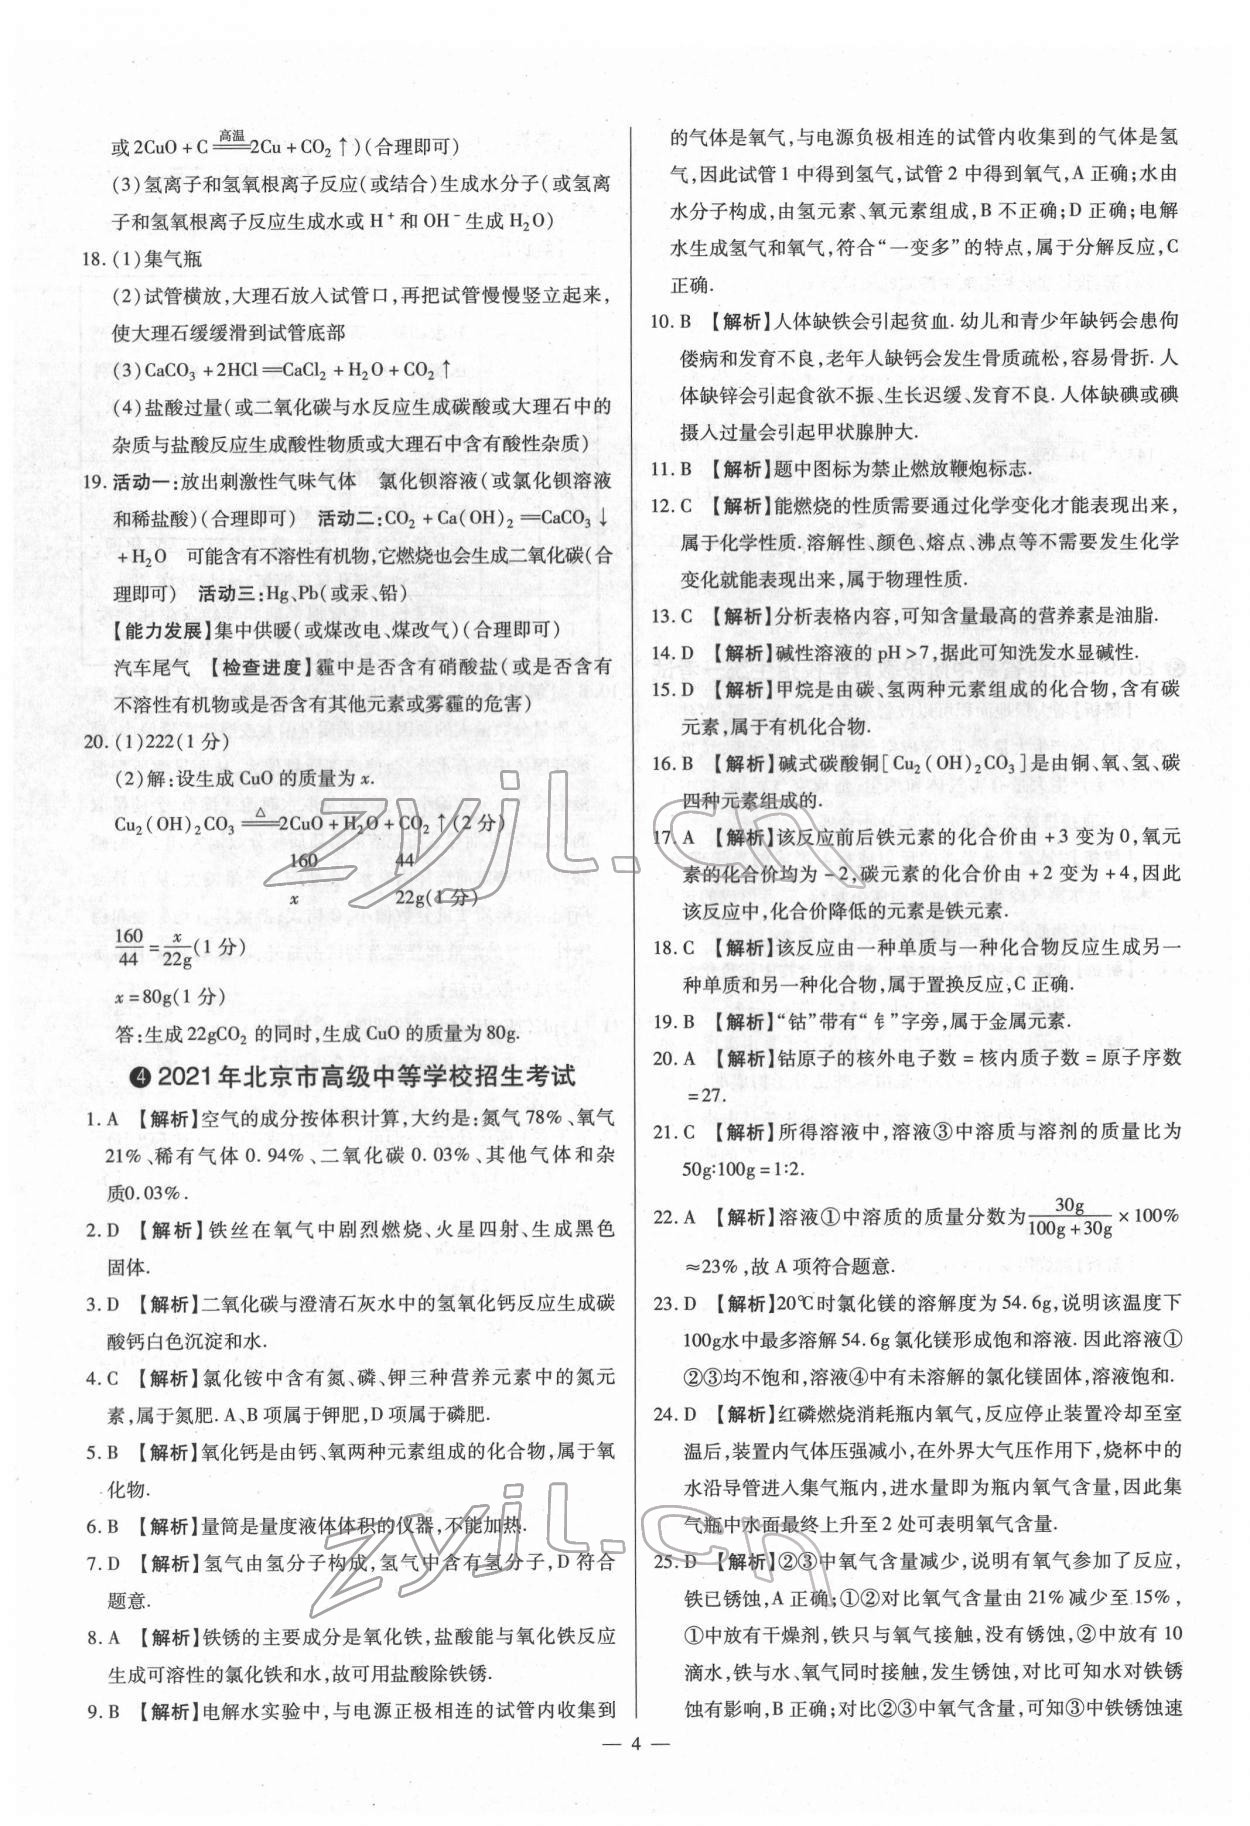 或2CuO+C=高温=2Cu+CO₂↑)(合理即可)
(3)氢离子和氢氧根离子反应(或结合)生成水分子(或氢离
子和氢氧根离子反应生成水或H⁺和OH⁻生成H₂O)
18.(1)集气瓶
(2)试管横放,大理石放入试管口,再把试管慢慢竖立起来,
使大理石缓缓滑到试管底部
(3)CaCO₃+2HCl═CaCl₂+H₂O+CO₂↑
(4)盐酸过量(或二氧化碳与水反应生成碳酸或大理石中的
杂质与盐酸反应生成酸性物质或大理石中含有酸性杂质)
19.活动一:放出刺激性气味气体 氯化钡溶液(或氯化钡溶液
和稀盐酸)(合理即可) 活动二:CO₂+Ca(OH)₂═CaCO₃↓
+H₂O 可能含有不溶性有机物,它燃烧也会生成二氧化碳(合
理即可) 活动三:Hg、Pb(或汞、铅)
【能力发展】集中供暖(或煤改电、煤改气)(合理即可)
汽车尾气 【检查进度】霾中是否含有硝酸盐(或是否含有
不溶性有机物或是否含有其他元素或雾霾的危害)
20.(1)222(1分)
(2)解:设生成CuO的质量为x.
Cu₂(OH)₂CO₃=△=2CuO+H₂O+CO₂↑(2分)
160 44
x 22g(1分)
160/44=x/22g(1分)
x=80g(1分)
答:生成22gCO₂的同时,生成CuO的质量为80g.
❹ 2021年北京市高级中等学校招生考试
1. A 【解析】空气的成分按体积计算,大约是:氮气78%、氧气
21%、稀有气体0.94%、二氧化碳0.03%、其他气体和杂
质0.03%.
2. D 【解析】铁丝在氧气中剧烈燃烧、火星四射、生成黑色
固体.
3. D 【解析】二氧化碳与澄清石灰水中的氢氧化钙反应生成碳
酸钙白色沉淀和水.
4. C 【解析】氯化铵中含有氮、磷、钾三种营养元素中的氮元
素,属于氮肥.A、B项属于钾肥,D项属于磷肥.
5. B 【解析】氧化钙是由钙、氧两种元素组成的化合物,属于氧
化物.
6. B 【解析】量筒是量度液体体积的仪器,不能加热.
7. D 【解析】氢气由氢分子构成,氢气中含有氢分子,D符合
题意.
8. A 【解析】铁锈的主要成分是氧化铁,盐酸能与氧化铁反应
生成可溶性的氯化铁和水,故可用盐酸除铁锈.
9. B 【解析】电解水实验中,与电源正极相连的试管内收集到
的气体是氧气,与电源负极相连的试管内收集到的气体是氢
气,因此试管1中得到氢气,试管2中得到氧气,A正确;水由
水分子构成,由氢元素、氧元素组成,B不正确;D正确;电解
水生成氢气和氧气,符合“一变多”的特点,属于分解反应,C
正确.
10. B 【解析】人体缺铁会引起贫血.幼儿和青少年缺钙会患佝
偻病和发育不良,老年人缺钙会发生骨质疏松,容易骨折.人
体缺锌会引起食欲不振、生长迟缓、发育不良.人体缺碘或碘
摄入过量会引起甲状腺肿大.
11. B 【解析】题中图标为禁止燃放鞭炮标志.
12. C 【解析】能燃烧的性质需要通过化学变化才能表现出来,
属于化学性质.溶解性、颜色、熔点、沸点等不需要发生化学
变化就能表现出来,属于物理性质.
13. C 【解析】分析表格内容,可知含量最高的营养素是油脂.
14. D 【解析】碱性溶液的pH>7,据此可知洗发水显碱性.
15. D 【解析】甲烷是由碳、氢两种元素组成的化合物,含有碳
元素,属于有机化合物.
16. B 【解析】碱式碳酸铜[Cu₂(OH)₂CO₃]是由铜、氧、氢、碳
四种元素组成的.
17. A 【解析】该反应前后铁元素的化合价由+3变为0,氧元
素的化合价均为-2,碳元素的化合价由+2变为+4,因此
该反应中,化合价降低的元素是铁元素.
18. C 【解析】该反应由一种单质与一种化合物反应生成另一
种单质和另一种化合物,属于置换反应,C正确.
19. B 【解析】“钴”带有“钅”字旁,属于金属元素.
20. A 【解析】钴原子的核外电子数=核内质子数=原子序数
=27.
21. C 【解析】所得溶液中,溶液③中溶质与溶剂的质量比为
50g:100g=1:2.
22. A 【解析】溶液①中溶质的质量分数为30g/(100g+30g)×100%
≈23%,故A项符合题意.
23. D 【解析】20℃时氯化镁的溶解度为54.6g,说明该温度下
100g水中最多溶解54.6g氯化镁形成饱和溶液.因此溶液①
②③均不饱和,溶液④中有未溶解的氯化镁固体,溶液饱和.
24. D 【解析】红磷燃烧消耗瓶内氧气,反应停止装置冷却至室
温后,装置内气体压强减小,在外界大气压作用下,烧杯中的
水沿导管进入集气瓶内,进水量即为瓶内氧气含量,因此集
气瓶中水面最终上升至2处可表明氧气含量.
25. D 【解析】②③中氧气含量减少,说明有氧气参加了反应,
铁已锈蚀,A正确;①②对比氧气含量由21%减少至15%,
①中放有干燥剂,铁只与氧气接触,没有锈蚀,②中放有10
滴水,铁与水、氧气同时接触,发生锈蚀,对比可知水对铁锈
蚀有影响,B正确;对比②③中氧气含量,可知③中铁锈蚀速
— 4 —
zyjl.cn
zyjl.cn